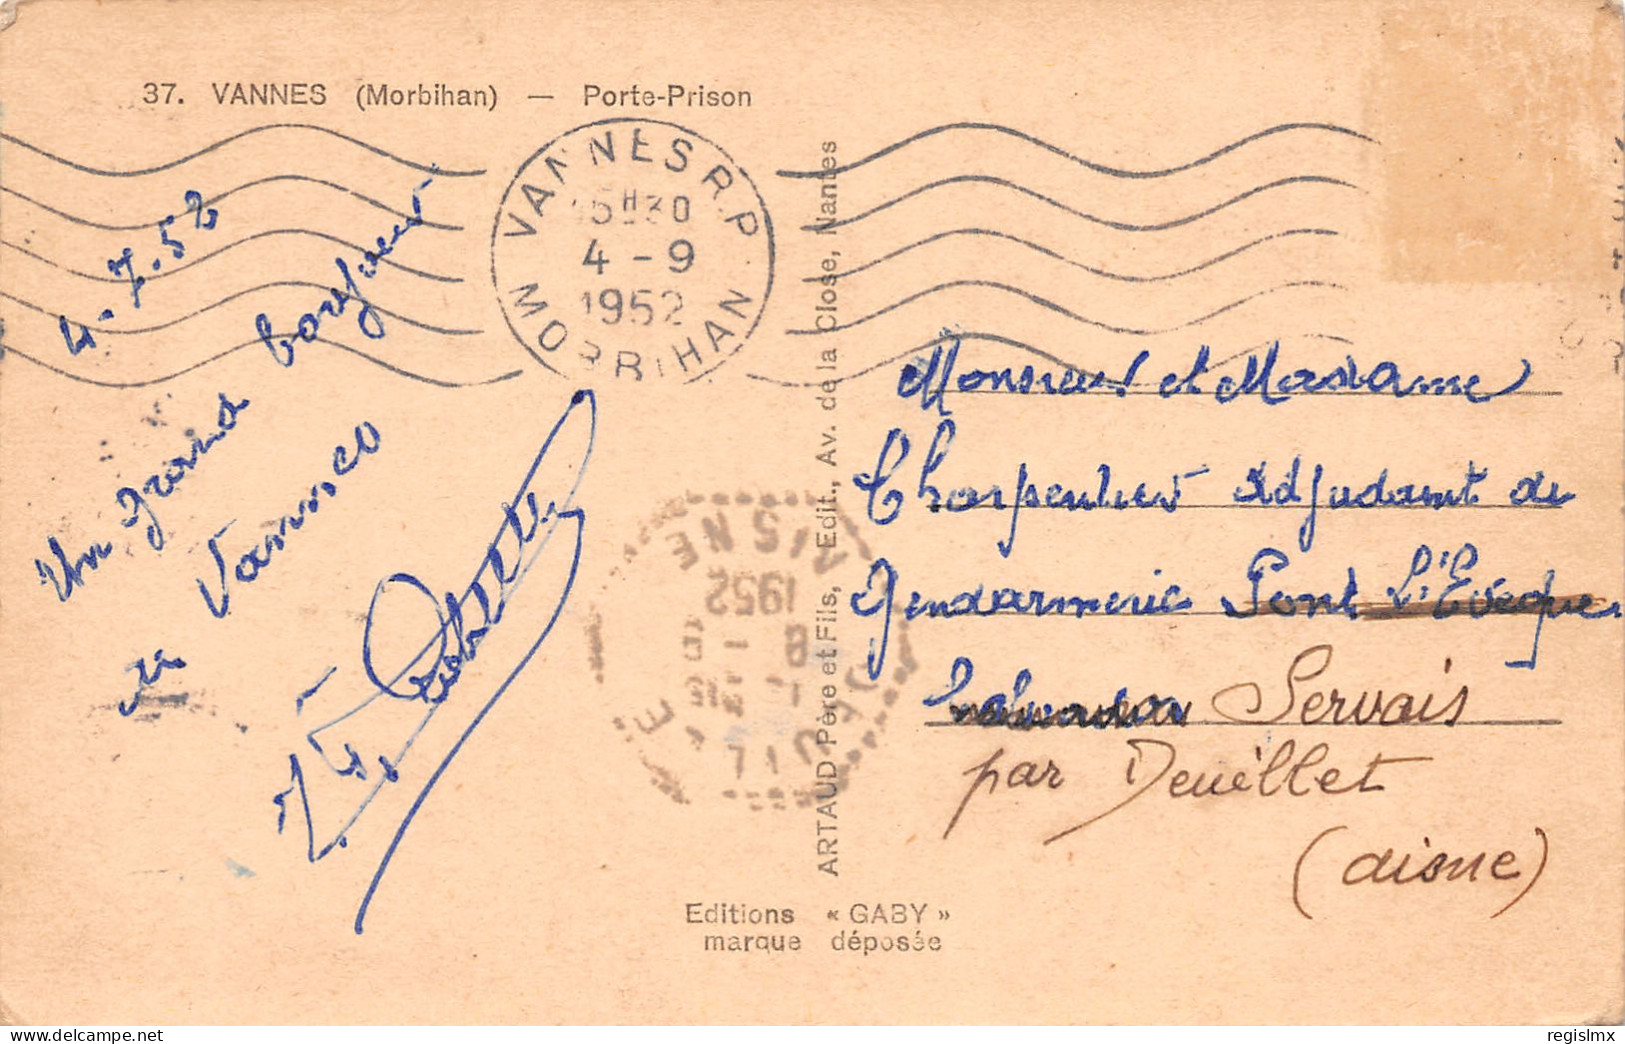 37. VANNES (Morbihan) — Porte-Prison
VANNES R.P.
15H30
4 - 9
1952
MORBIHAN
4-7-52
Un grand bonjour
de Vannes
Monsieur et Madame
Charpentier Adjudant de
Gendarmerie Pont L'Evêque
Servais
par Deuillet
(aisne)
AISNE
1952
ARTAUD Père et Fils, Edit., Av. de la Close, Nantes
Editions « GABY »
marque déposée
www.delcampe.net
regislmx